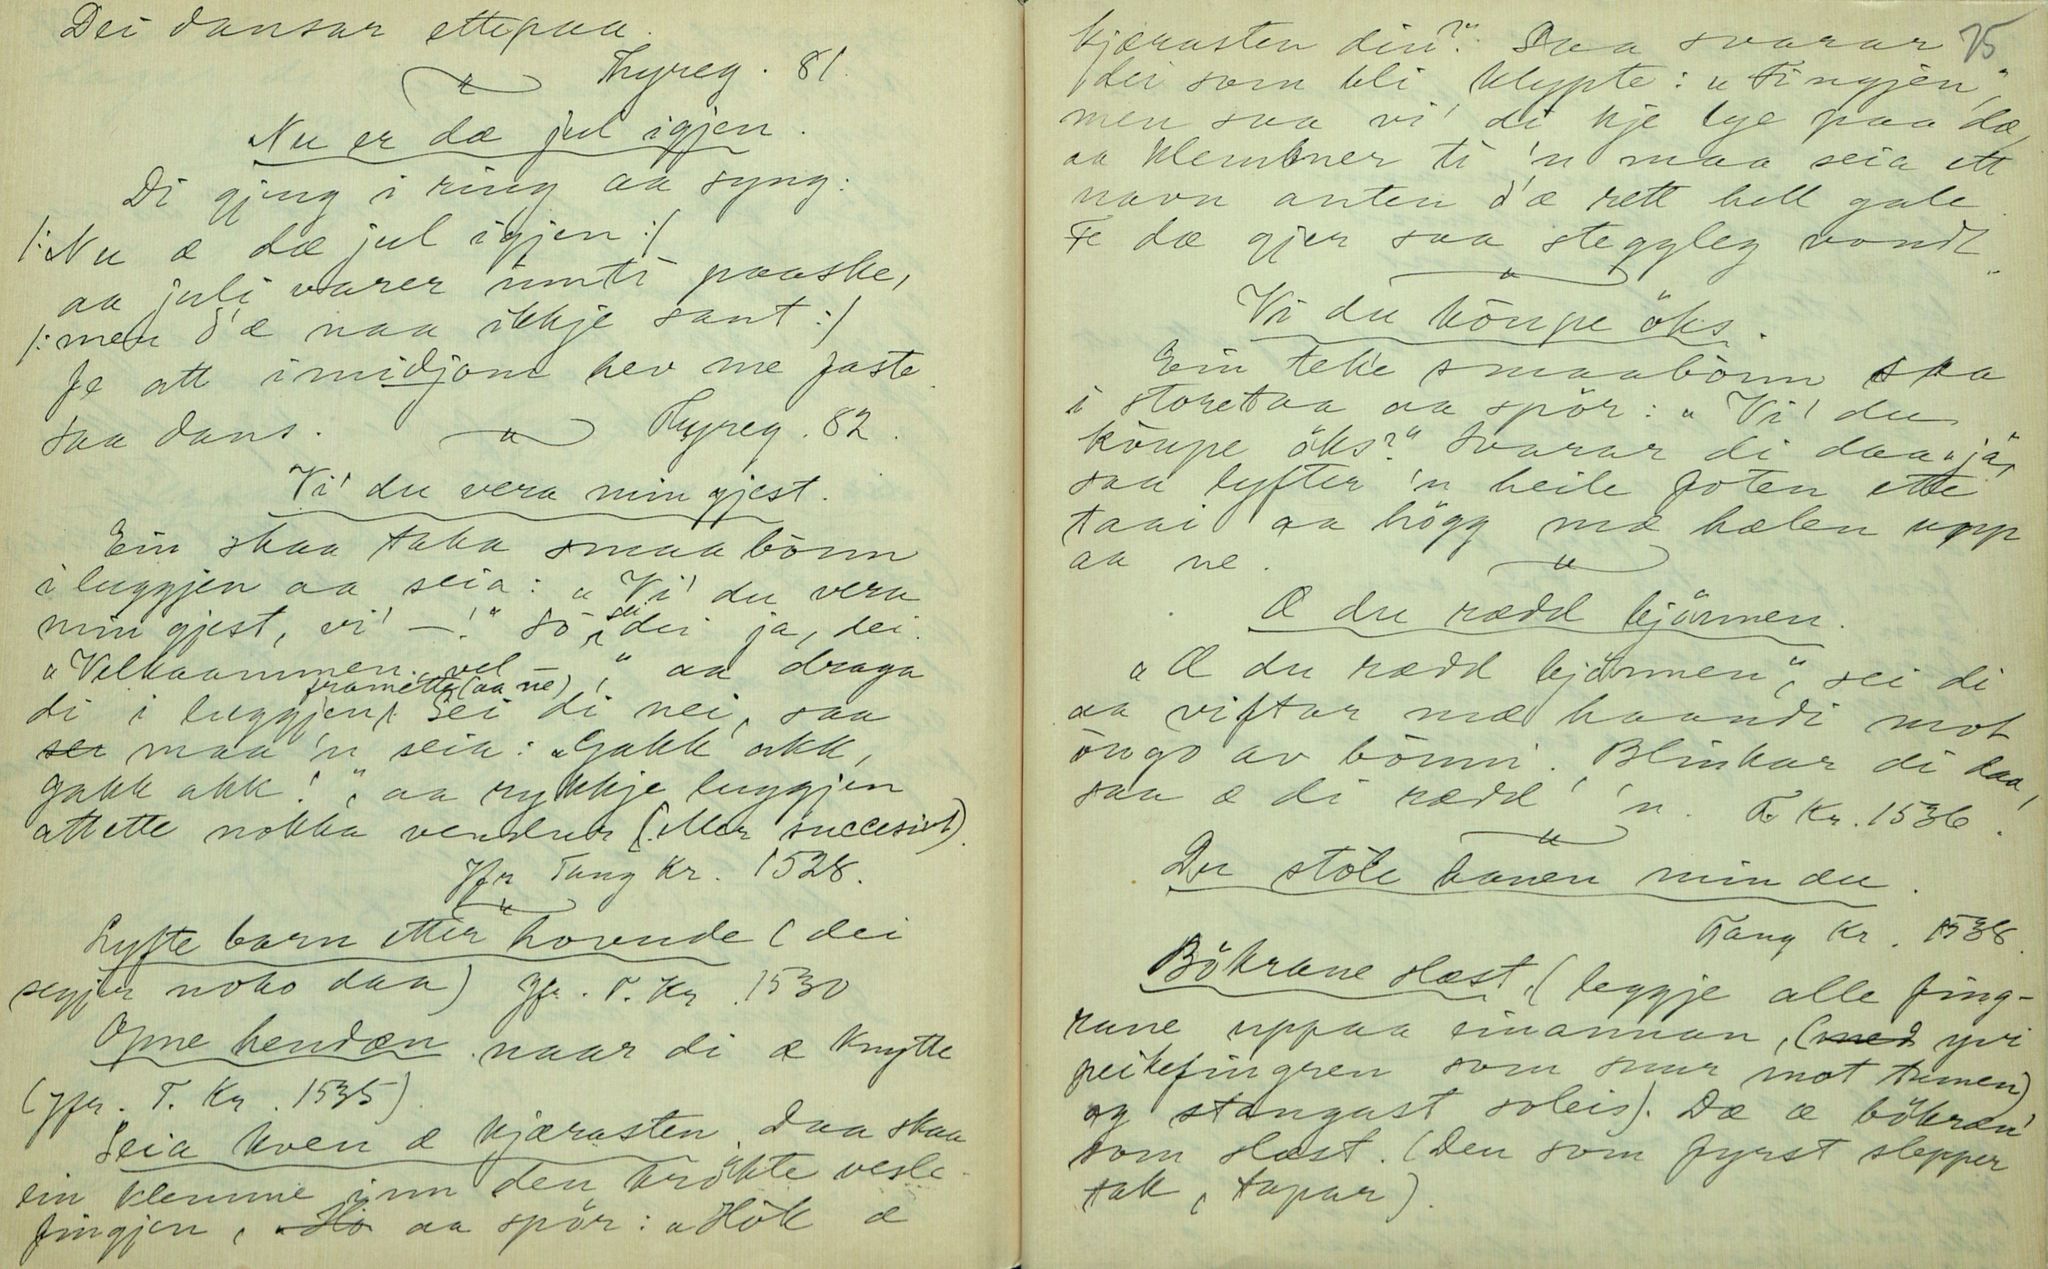 Dei dansar ettepaa.
Thyreg. 81.
Nu er dæ jul igjen.
Di gjeng i ring aa syng:
/: Nu æ dæ jul igjen :/
aa juli varer innti paaske,
/: men d'æ naa ikkje sant :/
fe att imidjom hev me faste.
saa dans.
Thyreg. 82.
Vi' du vera min gjest.
Ein skaa taka smaabönn
i luggjen aa seia: „Vi' du vera
min gjest, vi' —!" Sö sei dei ja, dei.
„Velkaammen, vel —!" aa draga
frametter (aa ne)
di i luggjen. Sei di nei, saa
sei maa 'n seia: „Gakk akk,
gakk akk!", aa rykkje luggjen
attette nokka vendur (eller succesivt).
Jfr Tang Kr. 1528.
Lyfte barn etter hovude (dei
segjer noko daa) Jfr. T. Kr. 1530
Opne hendæn naar di æ knytte
(Jfr. T. Kr. 1535)
Seia kven æ kjærasten. Daa skaa
ein klemme inn den krökte vesle-
fingjen, „Ho aa spör: „Hök æ
75
kjærasten din?" Daa svarar
dei som bli klypte: „Fingjen",
men saa vi' di kje lye paa dæ,
aa klembner ti 'n maa seia ett
navn anten d'æ rett hell gale.
Fe dæ gjer saa steggleg vondt.
Vi du köupe öks.
Ein teke smaabönn
i storetaa aa spör: „Vi' du
köupe öks?" Svarar di daa „ja",
saa lyfter 'n heile foten ette
taai aa högg mæ hælen upp
aa ne.
Æ du rædd bjönnen.
„Æ du rædd bjönnen", sei di
aa viftar mæ haandi mot
öugo av bönni. Blinkar di daa,
saa æ di rædd' 'n. T. Kr. 1536.
Du stöle hanen min du.
Tang Kr. 1538.
Bökrane slæst. (leggje alle fing-
rane uppaa einannan, (med yvi
peikefingren som snur mot tumen)
og stangast soleis). Dæ æ bökran'
som slæst. (Den som fyrst slepper
tak, tapar).